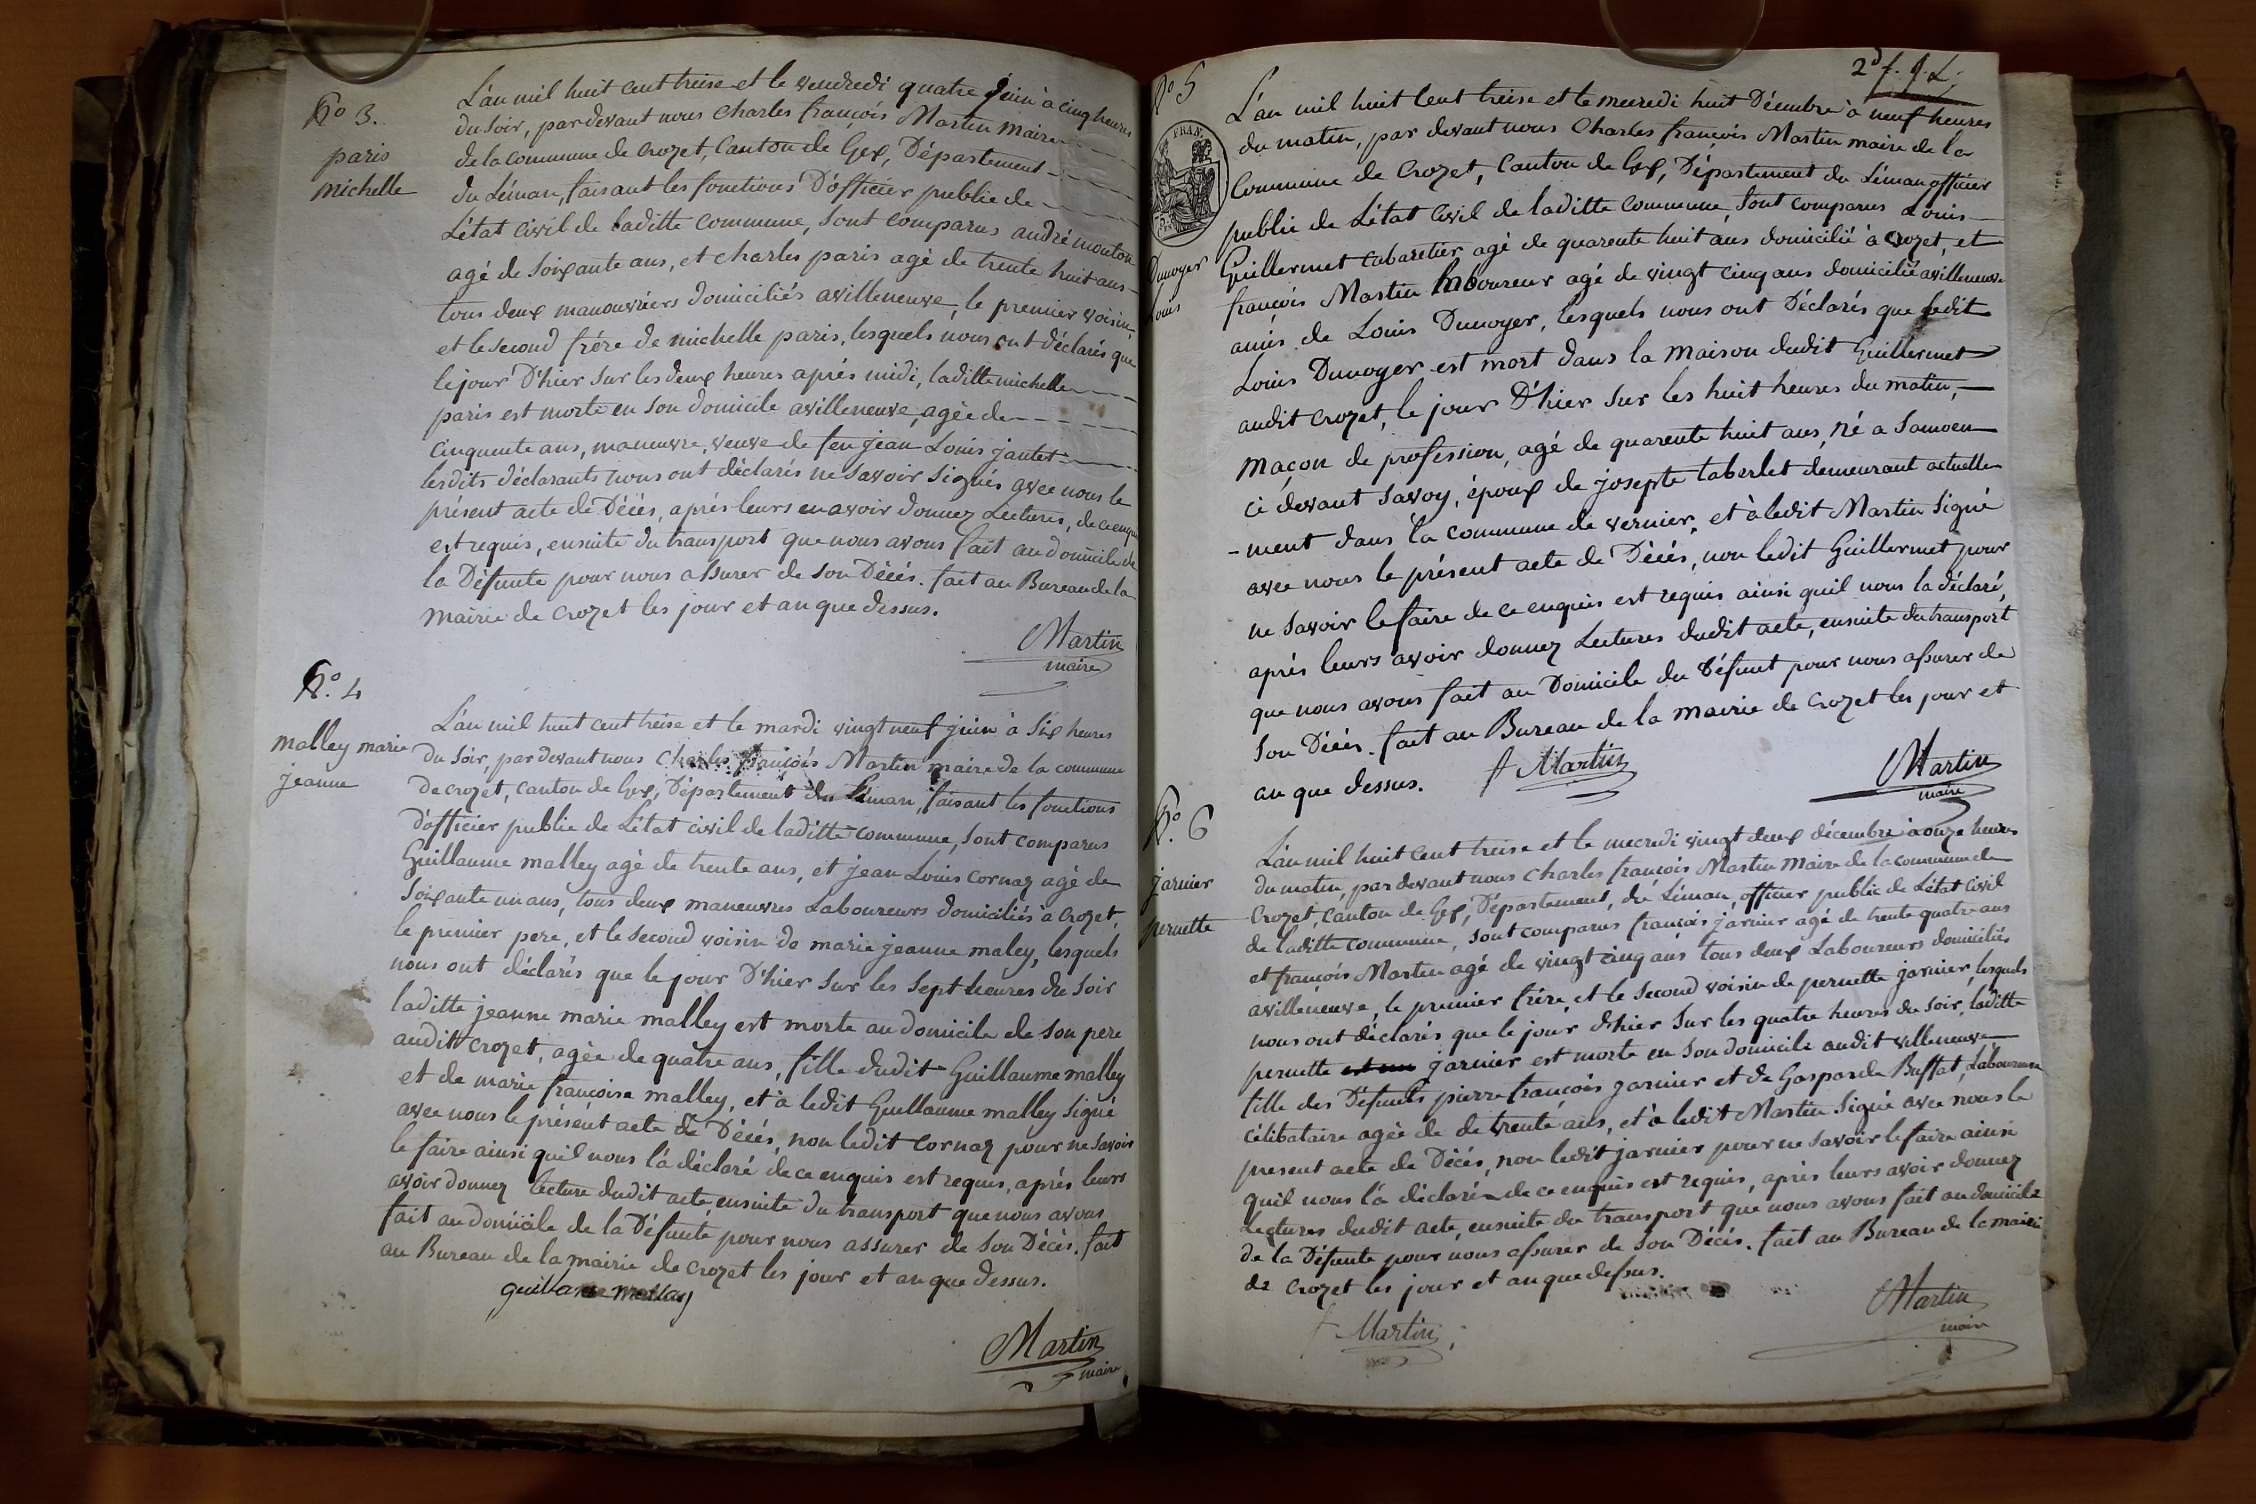 No 3.
paris
michelle
L'an mil huit cent treise et le vendredi quatre Juin à cinq heures
du soir, par devant nous Charles françois Martin Maire
de la commune de crozet, Canton de Gex, Département
du Léman, faisant les fonctions D'officier public de
L'état civil de laditte commune, sont comparus andré mouton
agé de soixante ans, et charles paris agé de trente huit ans
tous deux manouvriers domiciliés avilleneuve, le premier voisin
et le second frére de michelle paris, lesquels nous ont déclarés que
le jour D'hier sur les deux heures aprés midi, laditte michelle
paris est morte en son domicile avilleneuve, agée de
cinquente ans, maneuvre, veuve de feu jean Louis jantet
lesdits déclarants nous ont déclarés ne savoir signés avec nous le
présent acte de Décés, aprés leurs en avoir donnez Lectures, de ce enquis
est requis, ensuite du transport que nous avons fait au domicile de
la Défunte pour nous assurer de son Décés. fait au Bureau de la
mairie de crozet les jour et an que dessus.
Martin
maire
No. 4
malley marie
jeanne
L'an mil huit cent treise et le mardi vingt neuf juin à six heures
du soir, par devant nous Charles françois Martin maire de la commune
de crozet, canton de Gex, Département du Léman, faisant les fonctions
d'officier public de L'état civil de laditte commune, sont comparus
Guillaume malley agé de trente ans, et jean Louis cornaz agé de
soixante un ans, tous deux maneuvres Laboureurs domiciliés à crozet,
le premier pere, et le second voisin de marie jeanne maley, lesquels
nous ont déclarés que le jour D'hier sur les sept heures du soir
laditte jeanne marie malley est morte au domicile de son pere
audit crozet, agée de quatre ans, fille dudit Guillaume malley
et de marie françoise malley, et à ledit Guillaume malley signé
avec nous le présent acte de Décés, non ledit cornaz pour ne savoir
le faire ainsi quil nous l'a déclaré de ce enquis est requis, aprés leurs
avoir donnez lecture dudit acte, ensuite du transport que nous avons
fait au domicile de la Défunte pour nous assurer de son Décés. fait
au Bureau de la mairie de crozet les jour et an que dessus.
guillaume mallay
Martin
maire
2d f. J. L.
No 5
FRAN
Dunoyer
Louis
L'an mil huit Cent treise et le mecredi huit Décembre à neuf heures
du matin, par devant nous Charles françois Martin maire de la
Commune de Crozet, Canton de Gex, Département du Léman officier
public de L'état Civil de laditte Commune, sont comparus Louis
Guillermet cabaretier agé de quarente huit ans domicilié à crozet, et
françois Martin laboureur agé de vingt cinq ans domicilié avilleneuve
amis de Louis Dunoyer, lesquels nous ont Déclarés que ledit
Louis Dunoyer est mort dans la maison dudit Guillermet
audit crozet, le jour D'hier sur les huit heures du matin,
maçon de profession, agé de quarente huit ans, né a Samoen
ci devant savoy, époux de josepte taberlet demeurant actuelle
-ment dans la commune de vernier, et à ledit Martin signé
avec nous le présent acte de Décés, non ledit Guillermet pour
ne savoir le faire de ce enquis est requis ainsi quil nous la déclaré,
aprés leurs avoir donnez Lectures dudit acte, ensuite du transport
que nous avons fait au Domicile du Défunt pour nous assurer de
son Décés. fait au Bureau de la mairie de crozet les jour et
an que dessus.
f Martin
Martin
maire
No. 6
jarnier
pernette
L'an mil huit cent treise et le mecredi vingt deux décembre à onze heures
du matin, par devant nous charles françois Martin maire de la commune de
Crozet, canton de Gex, Département, du Léman, officier public de L'état civil
de laditte commune, sont comparus françois jarnier agé de trente quatre ans
et françois Martin agé de vingt cinq ans tous deux Laboureurs domiciliés
avilleneuve, le premier frére, et le second voisin de pernette jarnier, lesquels
nous ont déclarés que le jour d'hier sur les quatre heures du soir, laditte
pernette jarnier est morte en son domicile audit villeneuve
fille des Défunts pierre françois jarnier et de Gasparde Buffat, Laboureuse
célibataire agée de de trente ans, et à ledit Martin signé avec nous le
present acte de Décés, non ledit jarnier pour ne savoir le faire ainsi
quil nous l'a déclaré de ce enquis est requis, aprés leurs avoir donnez
Lectures dudit acte, ensuite du transport que nous avons fait au domicile
de la Défunte pour nous assurer de son Décés. fait au Bureau de la mairie
de crozet les jour et an que dessus.
f Martin
Martin
maire